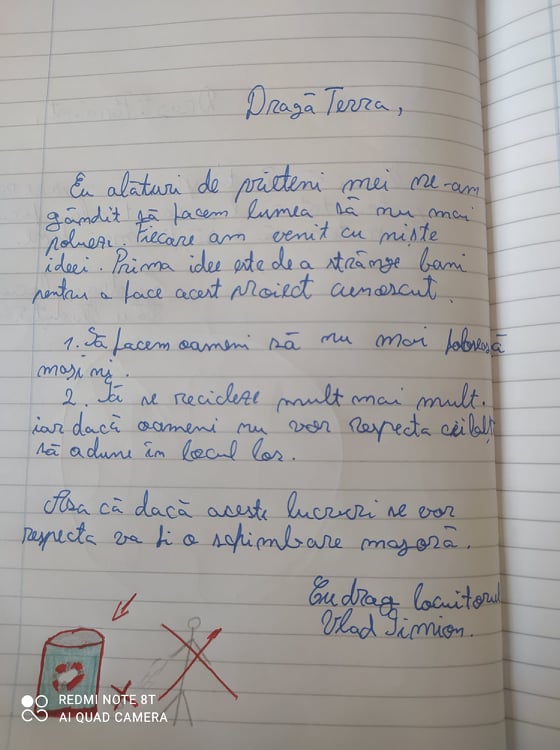 Dragă Terra,
Eu alături de prieteni mei ne-am
gândit să facem lumea să nu mai
polueze. Fiecare am venit cu niște
ideei. Prima idee este de a strânge bani
pentru a face acest proiect cunoscut.
1. Să facem oameni să nu mai folosească
mașini.
2. Să se recicleze mult mai mult.
iar dacă oameni nu vor respecta ceilalți
să adune în locul lor.
Așa că dacă aceste lucruri se vor
respecta va fi o schimbare majoră.
Cu drag locuitorul
Vlad Simion.
REDMI NOTE 8T
AI QUAD CAMERA